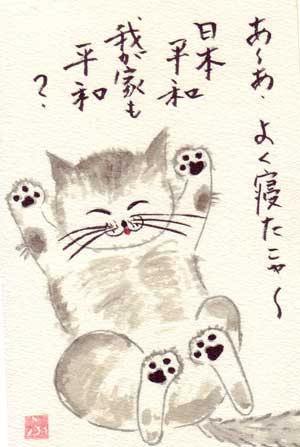 あ〜あ、よく寝たニャ〜
日本
平和
我が家も
平和
？